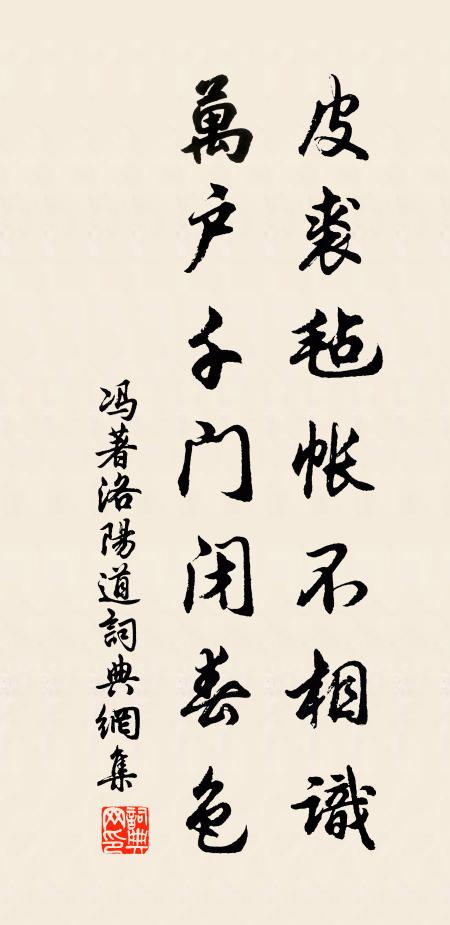 皮裘毡帐不相識
萬户千门闭春色
冯著洛陽道詞典網集
詞典网印